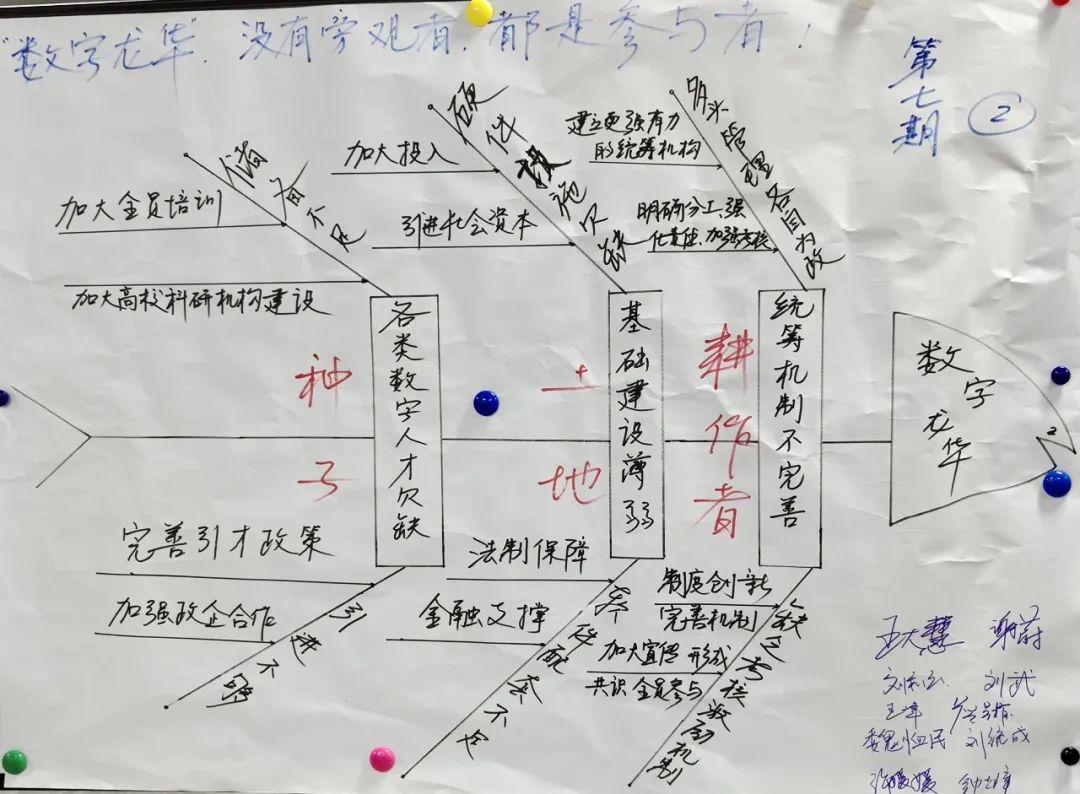 "数字龙华"，没有旁观者，都是参与者！
第七期
2
储备不足
加大全员培训
加大高校科研机构建设
硬件设施欠缺
加大投入
引进社会资本
多头管理各自为政
建立更强有力
的统筹机构
明确分工、强
化责任、加强考核
各类数字人才欠缺
基础建设薄弱
统筹机制不完善
种子
土地
耕作者
数字龙华
2
完善引才政策
加强政企合作
引进不够
法制保障
金融支撑
配套不足
制度创新
完善机制
加大宣传 形成
共识 全员参与
缺乏考核激励机制
王大慧
刘武